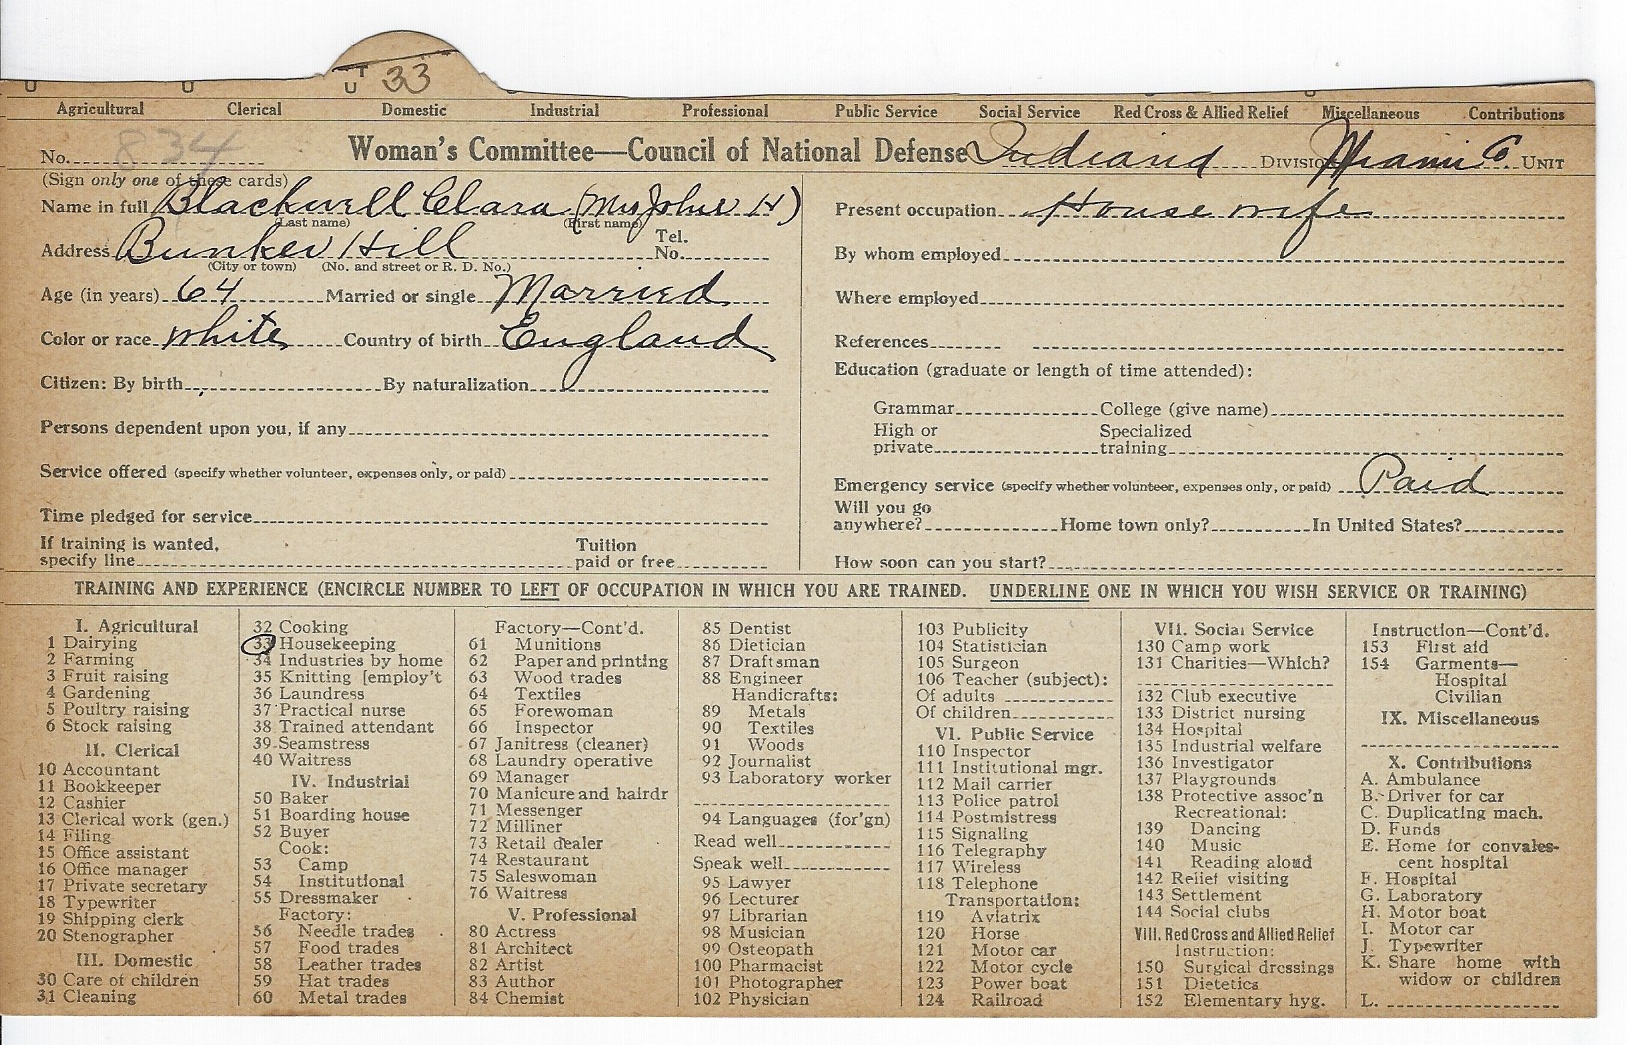 T
U U U 33
Agricultural Clerical Domestic Industrial Professional Public Service Social Service Red Cross & Allied Relief Miscellaneous Contributions
No. 834 Woman's Committee—Council of National Defense Indiana DIVISION Miami Co. UNIT
(Sign only one of these cards)
Name in full Blackwell Clara (Mrs John H)
(Last name) (First name)
Address Bunker Hill Tel. No.
(City or town) (No. and street or R. D. No.)
Age (in years) 64 Married or single Married
Color or race white Country of birth England
Citizen: By birth By naturalization
Persons dependent upon you, if any
Service offered (specify whether volunteer, expenses only, or paid)
Time pledged for service
If training is wanted, Tuition
specify line paid or free
Present occupation House wife
By whom employed
Where employed
References
Education (graduate or length of time attended):
Grammar College (give name)
High or Specialized
private training
Emergency service (specify whether volunteer, expenses only, or paid) Paid
Will you go
anywhere? Home town only? In United States?
How soon can you start?
TRAINING AND EXPERIENCE (ENCIRCLE NUMBER TO LEFT OF OCCUPATION IN WHICH YOU ARE TRAINED. UNDERLINE ONE IN WHICH YOU WISH SERVICE OR TRAINING)
I. Agricultural
1 Dairying
2 Farming
3 Fruit raising
4 Gardening
5 Poultry raising
6 Stock raising
II. Clerical
10 Accountant
11 Bookkeeper
12 Cashier
13 Clerical work (gen.)
14 Filing
15 Office assistant
16 Office manager
17 Private secretary
18 Typewriter
19 Shipping clerk
20 Stenographer
III. Domestic
30 Care of children
31 Cleaning
32 Cooking
33 Housekeeping
34 Industries by home
35 Knitting [employ't
36 Laundress
37 Practical nurse
38 Trained attendant
39 Seamstress
40 Waitress
IV. Industrial
50 Baker
51 Boarding house
52 Buyer
Cook:
53 Camp
54 Institutional
55 Dressmaker
Factory:
56 Needle trades
57 Food trades
58 Leather trades
59 Hat trades
60 Metal trades
Factory—Cont'd.
61 Munitions
62 Paper and printing
63 Wood trades
64 Textiles
65 Forewoman
66 Inspector
67 Janitress (cleaner)
68 Laundry operative
69 Manager
70 Manicure and hairdr
71 Messenger
72 Milliner
73 Retail dealer
74 Restaurant
75 Saleswoman
76 Waitress
V. Professional
80 Actress
81 Architect
82 Artist
83 Author
84 Chemist
85 Dentist
86 Dietician
87 Draftsman
88 Engineer
Handicrafts:
89 Metals
90 Textiles
91 Woods
92 Journalist
93 Laboratory worker
94 Languages (for'gn)
Read well
Speak well
95 Lawyer
96 Lecturer
97 Librarian
98 Musician
99 Osteopath
100 Pharmacist
101 Photographer
102 Physician
103 Publicity
104 Statistician
105 Surgeon
106 Teacher (subject):
Of adults
Of children
VI. Public Service
110 Inspector
111 Institutional mgr.
112 Mail carrier
113 Police patrol
114 Postmistress
115 Signaling
116 Telegraphy
117 Wireless
118 Telephone
Transportation:
119 Aviatrix
120 Horse
121 Motor car
122 Motor cycle
123 Power boat
124 Railroad
VII. Social Service
130 Camp work
131 Charities—Which?
132 Club executive
133 District nursing
134 Hospital
135 Industrial welfare
136 Investigator
137 Playgrounds
138 Protective assoc'n
Recreational:
139 Dancing
140 Music
141 Reading aloud
142 Relief visiting
143 Settlement
144 Social clubs
VIII. Red Cross and Allied Relief
Instruction:
150 Surgical dressings
151 Dietetics
152 Elementary hyg.
Instruction—Cont'd.
153 First aid
154 Garments—
Hospital
Civilian
IX. Miscellaneous
X. Contributions
A. Ambulance
B. Driver for car
C. Duplicating mach.
D. Funds
E. Home for convales-
cent hospital
F. Hospital
G. Laboratory
H. Motor boat
I. Motor car
J. Typewriter
K. Share home with
widow or children
L.